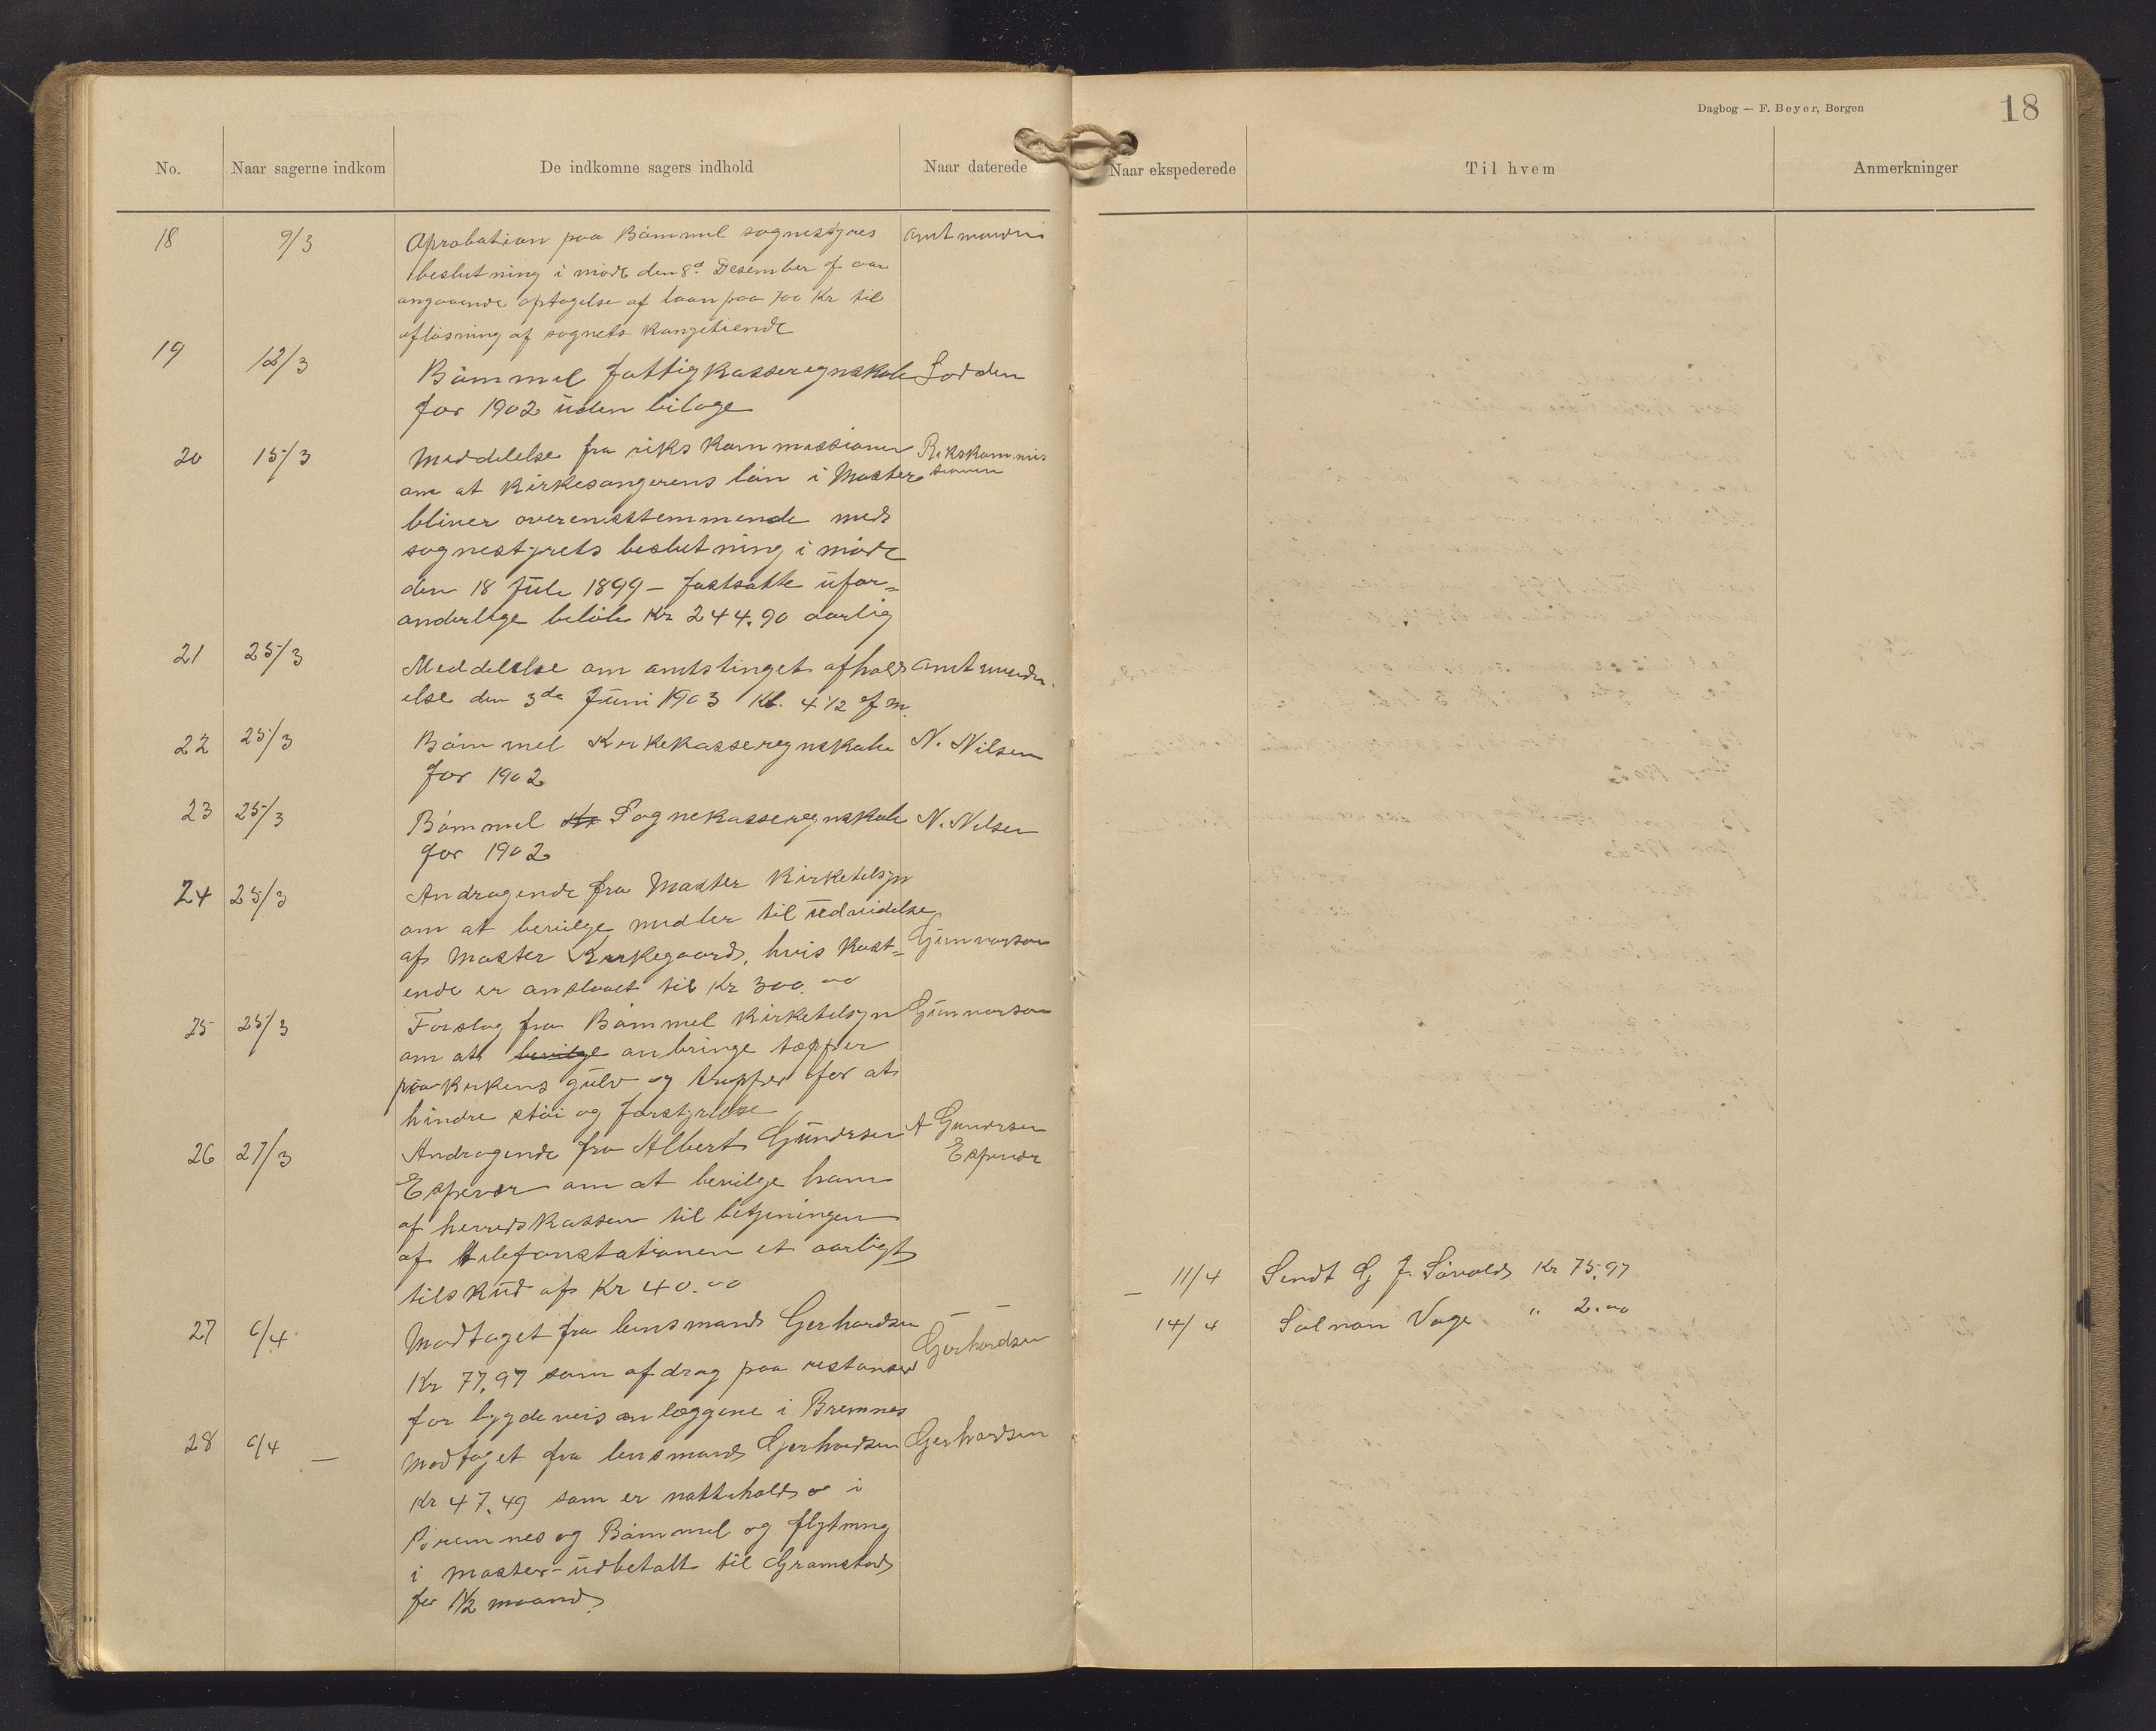 Dagbog — F. Beyer, Bergen
18
No. Naar sagerne indkom De indkomne sagers indhold Naar daterede Naar ekspederede Til hvem Anmerkninger
18 9/3 Aprobation paa Bömmel sognestyres Amtmanden
beslutning i möde den 8d Desember f aar
angaaende optagelse af laan paa 700 Kr til
aflösning af sognets Kongetiende
19 12/3 Bömmel fattigkasseregnskab Lodden
for 1902 uden bilage
20 15/3 Meddelelse fra rikskommissionen Rikskommis
om at Kirkesangerens lön i Moster sionen
bliver overensstemmende med
sognestyrets beslutning i möde
den 18 Juli 1899 – fastsatte ufor=
anderlige belöb Kr 244.90 aarlig
21 25/3 Meddelelse om amtstinget afhold= Amtmanden
else den 3de Juni 1903 Kl. 4 1/2 efm.
22 25/3 Bömmel Kirkekasseregnskab N. Nilsen
for 1902
23 25/3 Bömmel Ki Sognekasseregnskab N. Nilsen
for 1902
24 25/3 Andragende fra Moster Kirketilsyn
om at bevilge midler til udvidelse
af Moster Kirkegaard, hvis Kost= Gunnarson
ende er anslaaet til Kr 300.00
25 25/3 Forslag fra Bömmel Kirketilsyn Gunnarson
om at bevilge anbringe tæpper
paa Kirkens gulv og trapper for at
hindre stöi og forstyrrelse
26 27/3 Andragende fra Albert Gundersen A Gundersen
Espevær om at bevilge ham Espevær
af herredskassen til betjeningen
af telefonstationen et aarligt
tilskud af Kr 40.00
11/4 Sendt G J. Sövold Kr 75.97
27 6/4 Modtaget fra lensmand Gerhardsen Gerhardsen 14/4 Salmon Vage " 2.00
Kr 77.97 som afdrag paa restanser
for bygdeveisanlæggene i Bremnes
28 6/4 — Modtaget fra lensmand Gerhardsen Gerhardsen
Kr 47.49 som er nattehold i
Bremnes og Bömmel og flytning
i Moster – udbetalt til Gramstad
for 1 1/2 maaned.